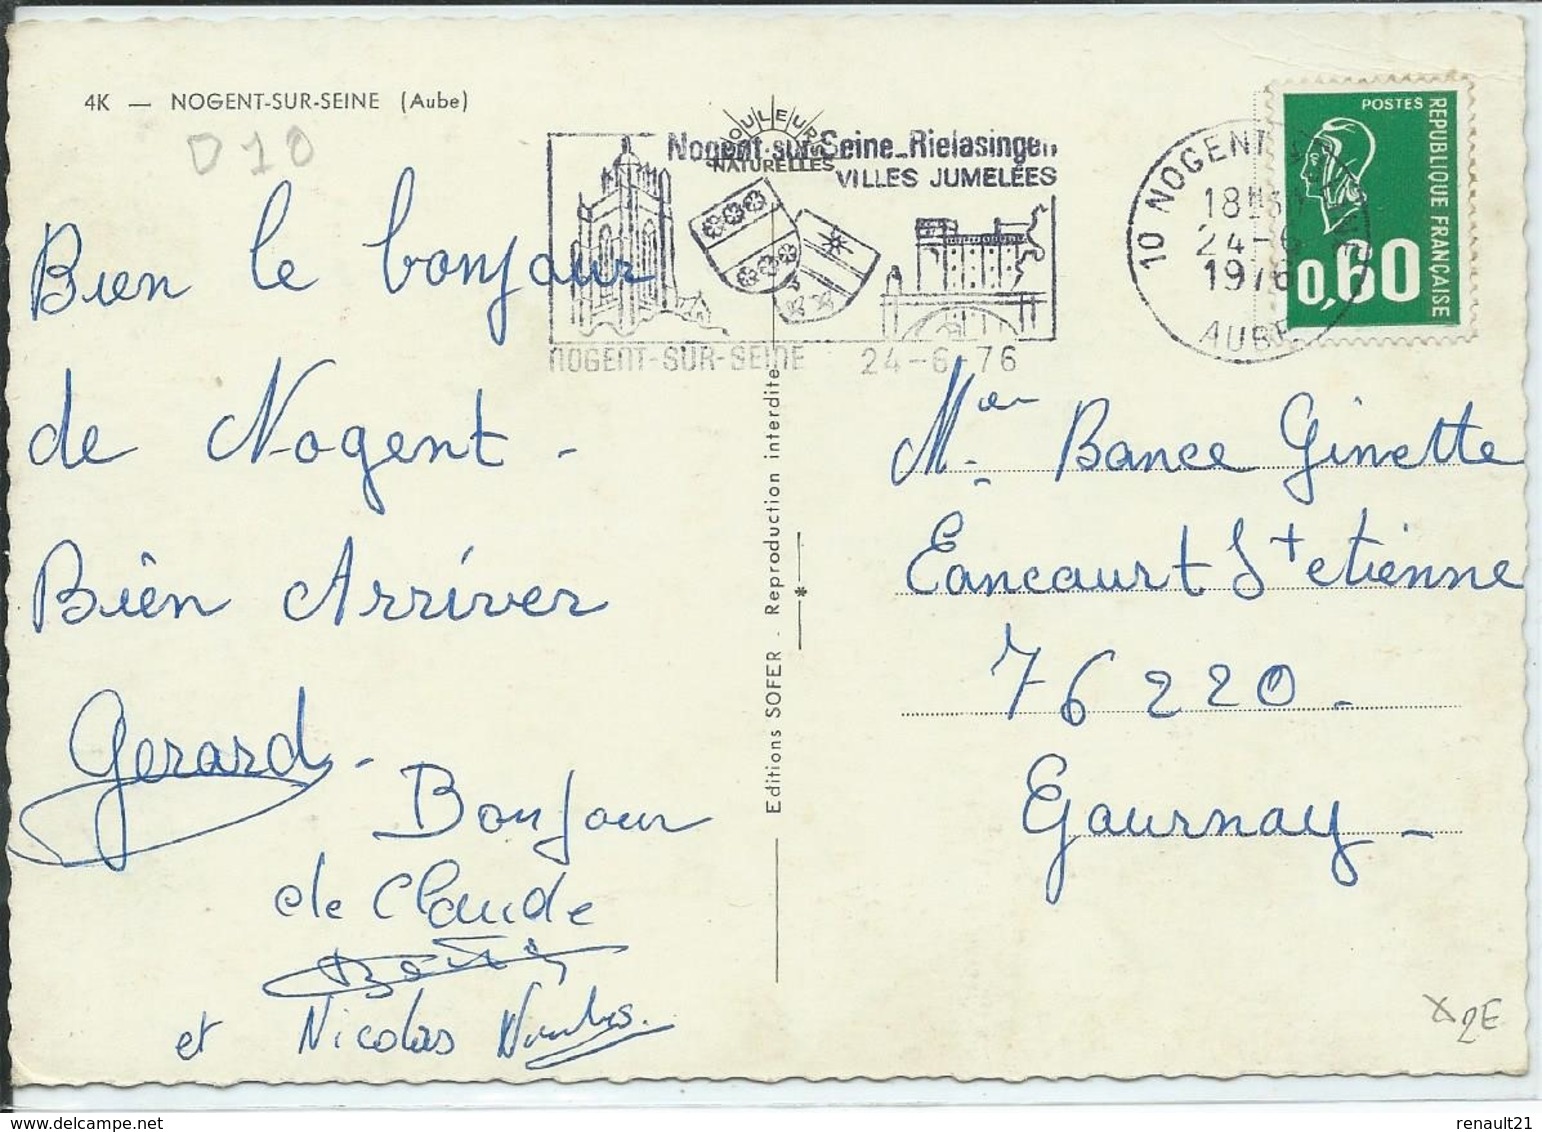 4K — NOGENT-SUR-SEINE (Aube)
D10
COULEURS
NATURELLES
Nogent-sur-Seine_Rielasingen
VILLES JUMELÉES
NOGENT-SUR-SEINE 24-6-76
10 NOGENT
18H
24-6
1976
AUBE
POSTES
REPUBLIQUE FRANÇAISE
0,60
Bien le bonjour
de Nogent -
Bien Arriver
Gerard -
Bonjour
de Claude
et Nicolas
Editions SOFER - Reproduction interdite
Bance Ginette
Eancourt St etienne
76220 -
Gournay -
x 2E
renault21